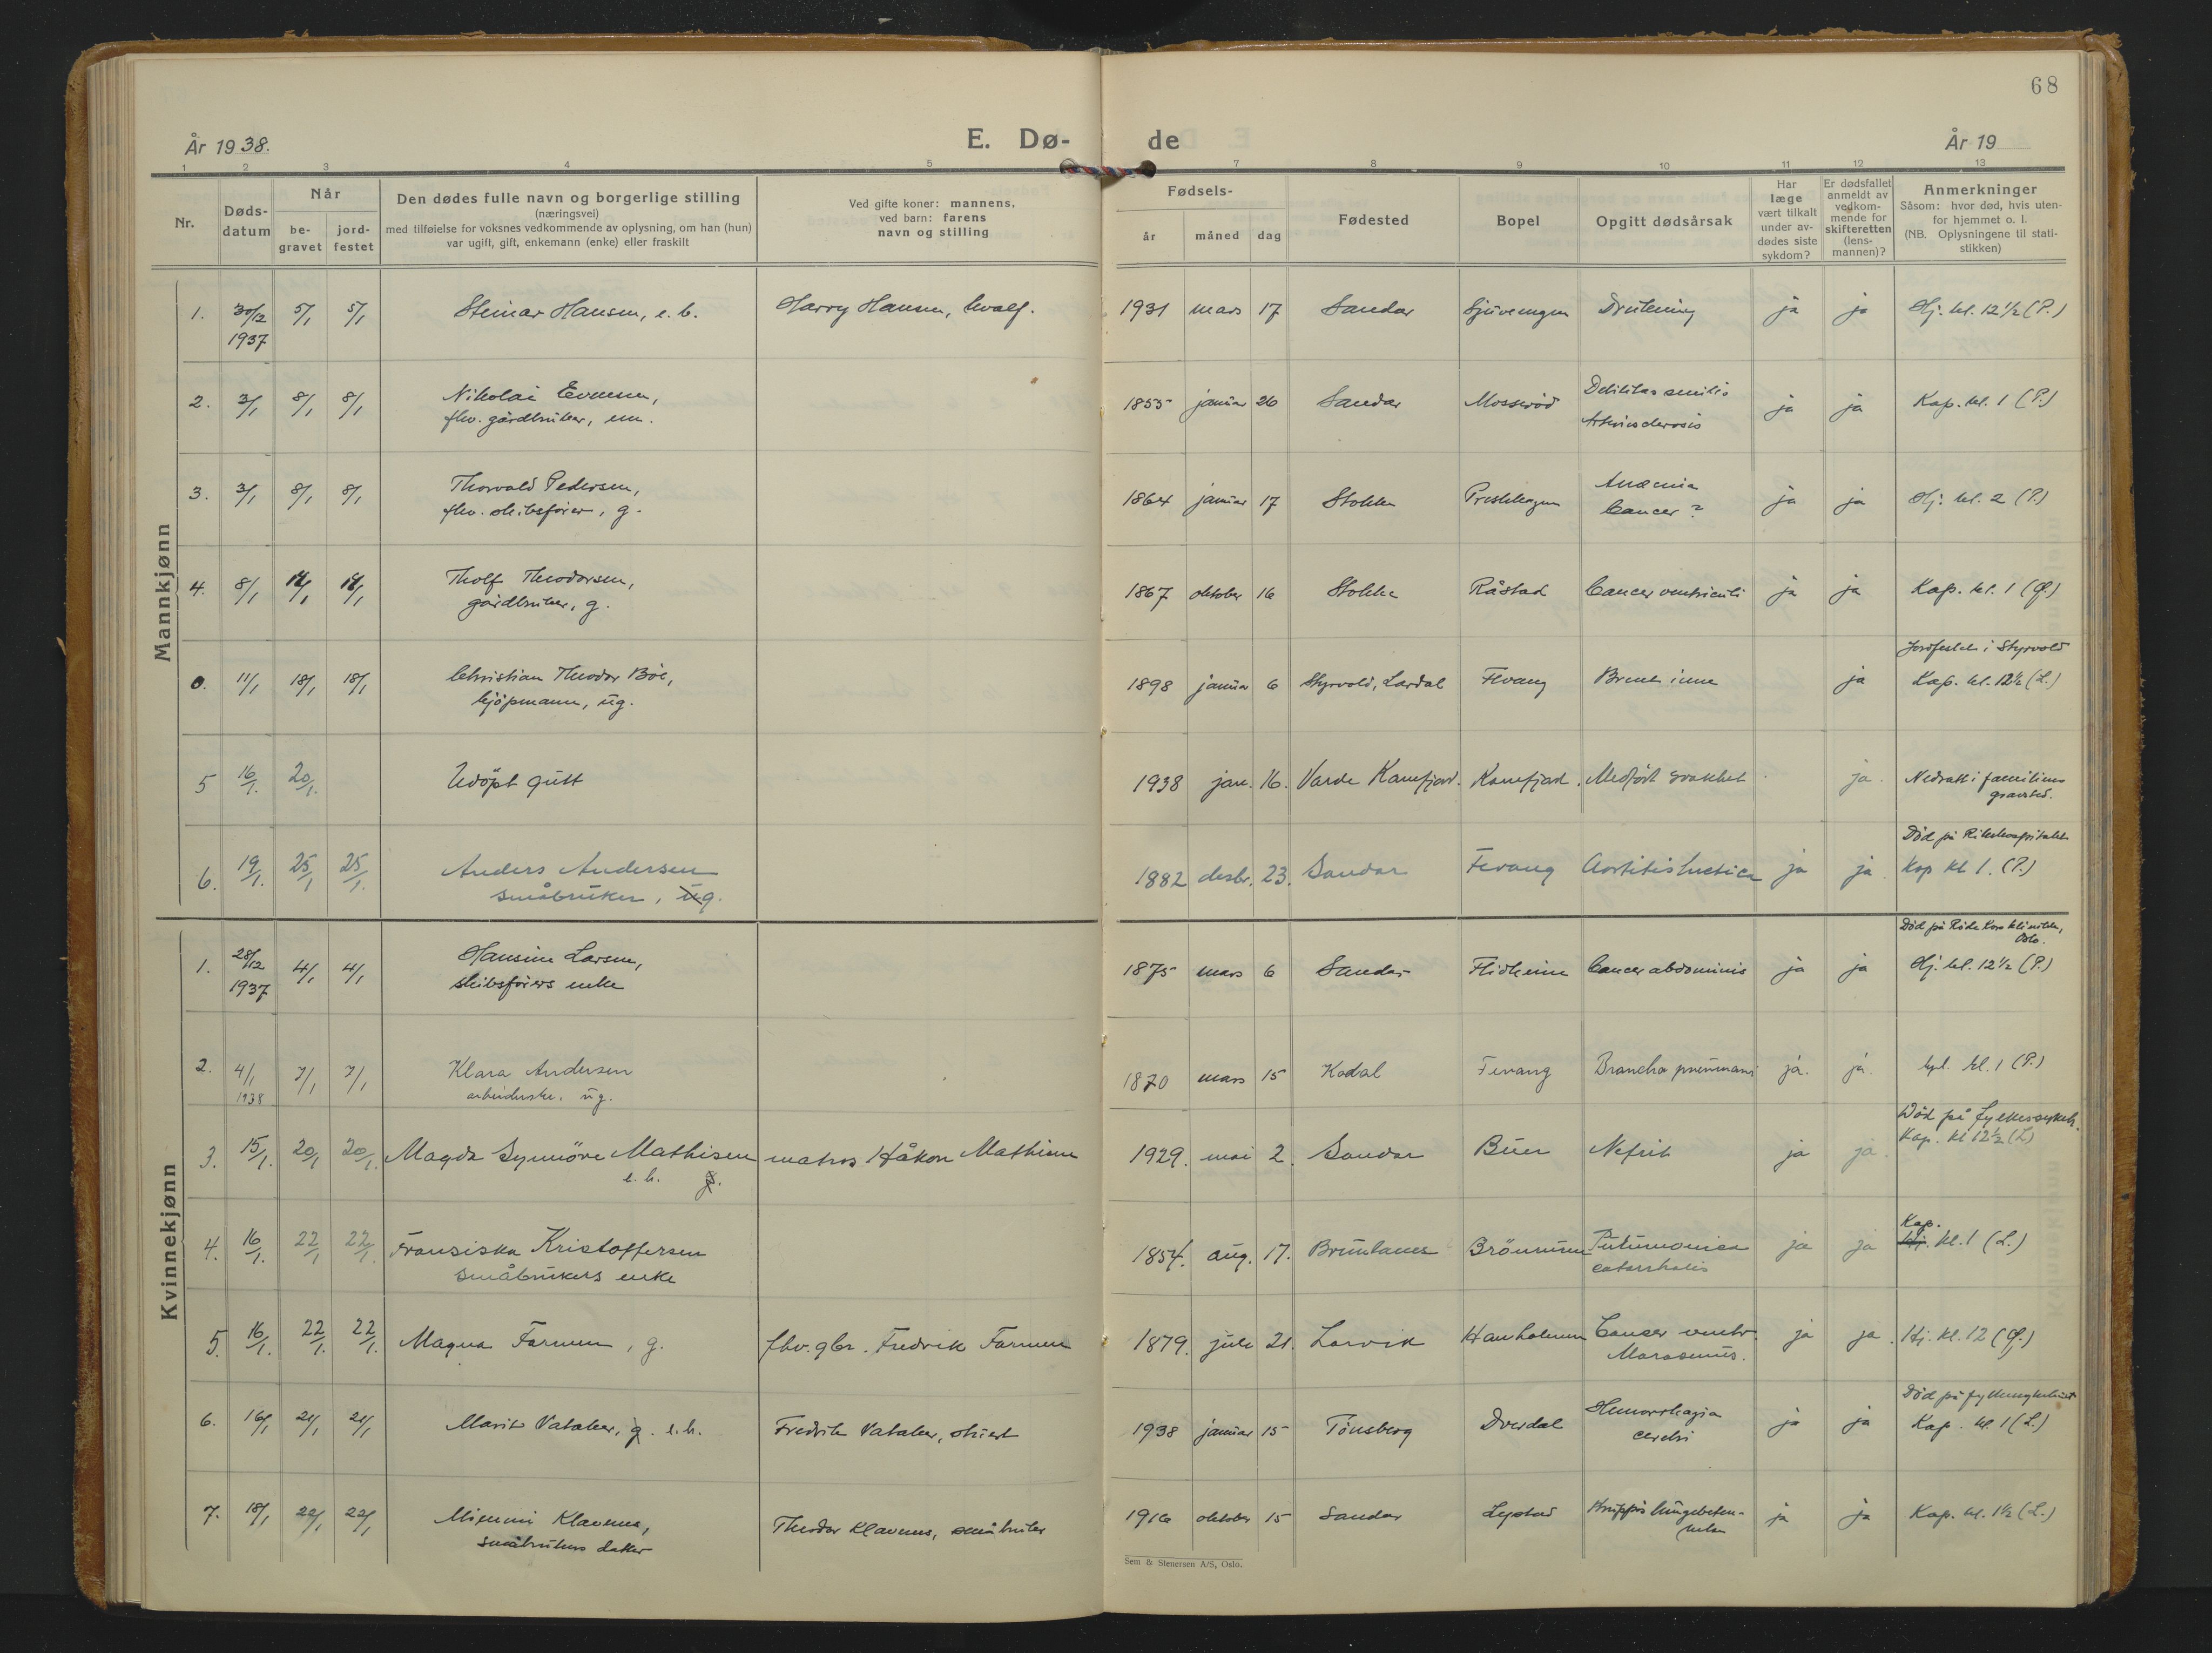 68
År 1938.
E. Dø-
de
År 19
1 2 3 4 5 7 8 9 10 11 12 13
Nr.
Døds-
datum
Når
be-
gravet
jord-
festet
Den dødes fulle navn og borgerlige stilling
(næringsvei)
med tilføielse for voksnes vedkommende av oplysning, om han (hun)
var ugift, gift, enkemann (enke) eller fraskilt
Ved gifte koner: mannens,
ved barn: farens
navn og stilling
Fødsels-
år måned dag
Fødested
Bopel
Opgitt dødsårsak
Har
læge
vært tilkalt
under av-
dødes siste
sykdom?
Er dødsfallet
anmeldt av
vedkom-
mende for
skifteretten
(lens-
mannen)?
Anmerkninger
Såsom: hvor død, hvis uten-
for hjemmet o. l.
(NB. Oplysningene til stati-
stikken)
Mannkjønn
1. 30/12 5/1 5/1 Steinar Hansen, e. b. Harry Hansen, hvalf. 1931 mars 17 Sandar Drukning ja ja Hj. kl. 12 1/2 (P.)
1937
2. 3/1 8/1 8/1 Nikolai Evensen, 1855 januar 26 Sandar Mosserød Debilitas senilis ja ja Kap. kl. 1 (P.)
fhv. gårdbruker, em. Arteriosclerosis
3. 3/1 8/1 8/1 Thorvald Pedersen, 1864 januar 17 Stokke Anæmia ja ja Hj. kl. 2 (P.)
fhv. skibsfører, g. Cancer?
4. 8/1 14/1 14/1 Tholf Theodorsen, 1867 oktober 16 Stokke Råstad Cancer ventriculi ja ja Kap. kl. 1
gårdbruker, g.
Jordfestet i Styrvold
0. 11/1 18/1 18/1 Christian Theodor Bøe, 1898 januar 6 Styrvold, Lardal Fevang Brent inne ja Kap. kl. 12 1/2 (L.)
kjøpmann, ug.
5 16/1. 20/1. Udöpt gutt 1938 jan. 16. Varde Ranefjord. Ranefjord. Medfødt svakhet ja. Nedsatt i familiens
gravsted.
Död på Rikshospitalet
6. 19/1. 25/1 25/1. Anders Andersen 1882 desbr. 23. Sandar Fevang Aortitis luetica ja ja. Kap kl 1. (P.)
småbruker, ug.
Kvinnekjønn
Död på Røde Kors klinikk,
Oslo.
1. 28/12 4/1 4/1 Hansine Larsen, 1875 mars 6 Sandar Cancer abdominis ja ja Hj. kl. 12 1/2 (P.)
1937 skibsførers enke
2. 4/1 7/1 7/1 Klara Andersen 1870 mars 15 Kodal Fevang ja. ja. kpl. kl. 1 (P.)
1938 arbeiderske. ug.
Död på fylkessykeh.
3. 15/1. 20/1 20/1. Magda Synnöve Mathisen matros Håkon Mathisen 1929. mai 2. Sandar Buer Nefrit ja ja. Kap. kl 12 1/2 (L)
e. b. g.
Kap.
4. 16/1. 22/1 22/1. Fransiska Kristoffersen 1854. aug. 17. Brunlanes Brönnum Pneumonica ja ja Hj. kl. 1 (L.)
småbrukers enke catarrhalis
5. 16/1. 22/1. 22/1. Magna Farmen, g. fhv. gbr. Fredrik Farmen 1879. juli 21. Larvik Cancer ventr. ja ja. Hj. kl. 12
Marasmus.
6. 16/1 21/1 21/1 Marit Vataker, g. e. b. Fredrik Vataker, 1938 januar 15 Tönsberg Dverdal Hemorrhagia ja ja Kap. kl. 1 (L.)
cerebri
7. 18/1 22/1 22/1 Mimmi Klavenes, Theodor Klavenes, småbruker 1916 oktober 15 Sandar Lystad Kruppös lungebeten- ja ja Kap. kl. 1 1/2 (L.)
småbrukers datter nelse
Sem & Stenersen A/S, Oslo.